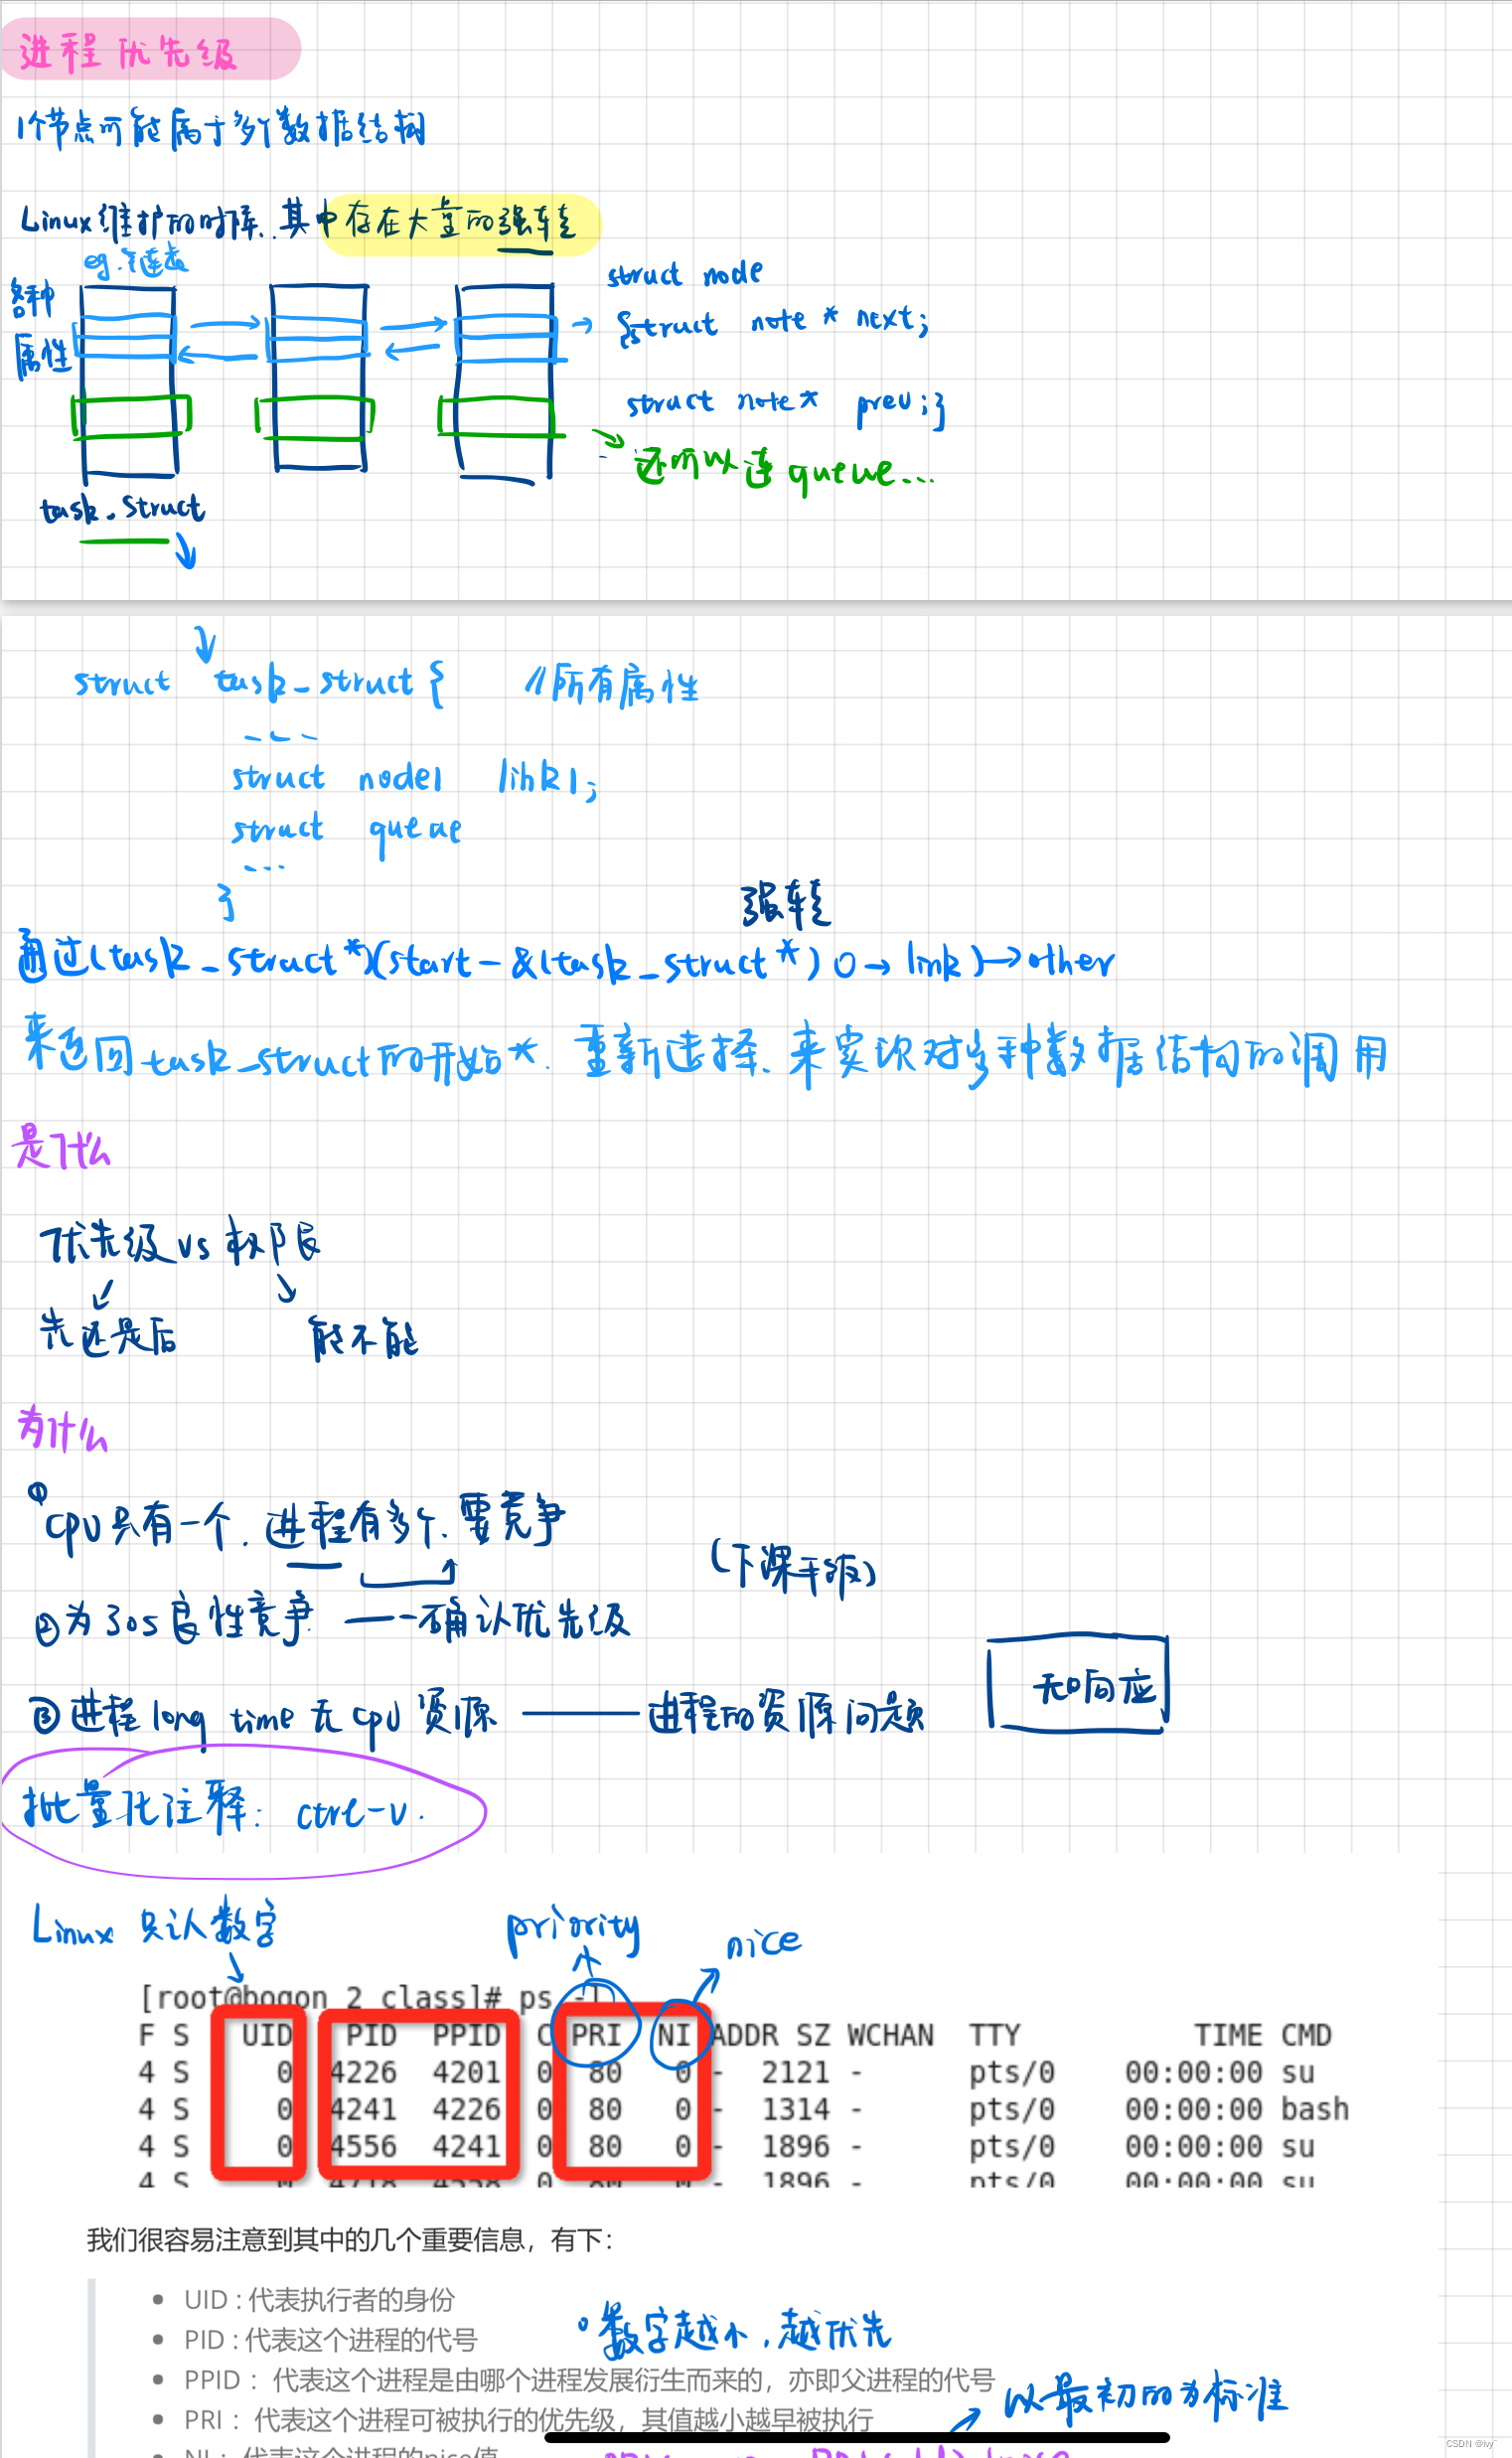 进程优先级
1个节点可能属于多个数据结构
Linux维护的时候..其中存在大量的强转
eg.链表
各种
属性
struct node
{struct note * next;
struct note* prev;}
还可以连queue...
task_struct
struct task_struct{ //所有属性
...
struct node1 link1;
struct queue
...
}
强转
通过(task_struct*)(start-&(task_struct*)0→link)→other
来返回task_struct的开始*.重新选择.来实现对多种数据结构的调用
是什么
优先级vs权限
先还是后 能不能
为什么
①CPU只有一个.进程有多个.要竞争
(下课干饭)
②为3os良性竞争 ——确认优先级
③进程long time无CPU资源——进程的资源问题
无响应
批量化注释: ctrl-v.
Linux 只认数字
priority
nice
[root@bogon 2 class]# ps -l
F S UID PID PPID C PRI NI ADDR SZ WCHAN TTY TIME CMD
4 S 0 4226 4201 0 80 0 - 2121 - pts/0 00:00:00 su
4 S 0 4241 4226 0 80 0 - 1314 - pts/0 00:00:00 bash
4 S 0 4556 4241 0 80 0 - 1896 - pts/0 00:00:00 su
4 S 0 4718 4558 0 80 0 - 1896 - pts/0 00:00:00 su
我们很容易注意到其中的几个重要信息，有下：
• UID : 代表执行者的身份
• PID : 代表这个进程的代号
数字越小,越优先
• PPID ：代表这个进程是由哪个进程发展衍生而来的，亦即父进程的代号
以最初的为标准
• PRI ：代表这个进程可被执行的优先级，其值越小越早被执行
• NI ：代表这个进程的nice值
CSDN @lvy˜